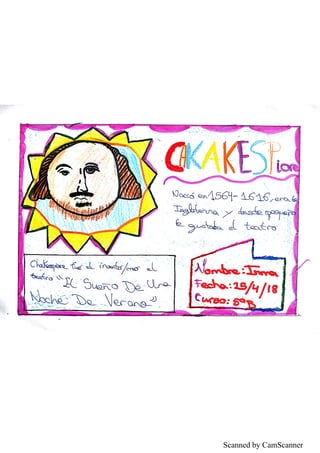 CHAKAKESPiore
Nació en 1564-1616, era de
Inglaterra y desde pequeño
le gustaba el teatro
Chakespeare fue el inventor/creó el
teatro "El Sueño De Una
Noche De Verano"
Nombre: Inma
Fecha: 25/4/18
Curso: 5ºB
Scanned by CamScanner